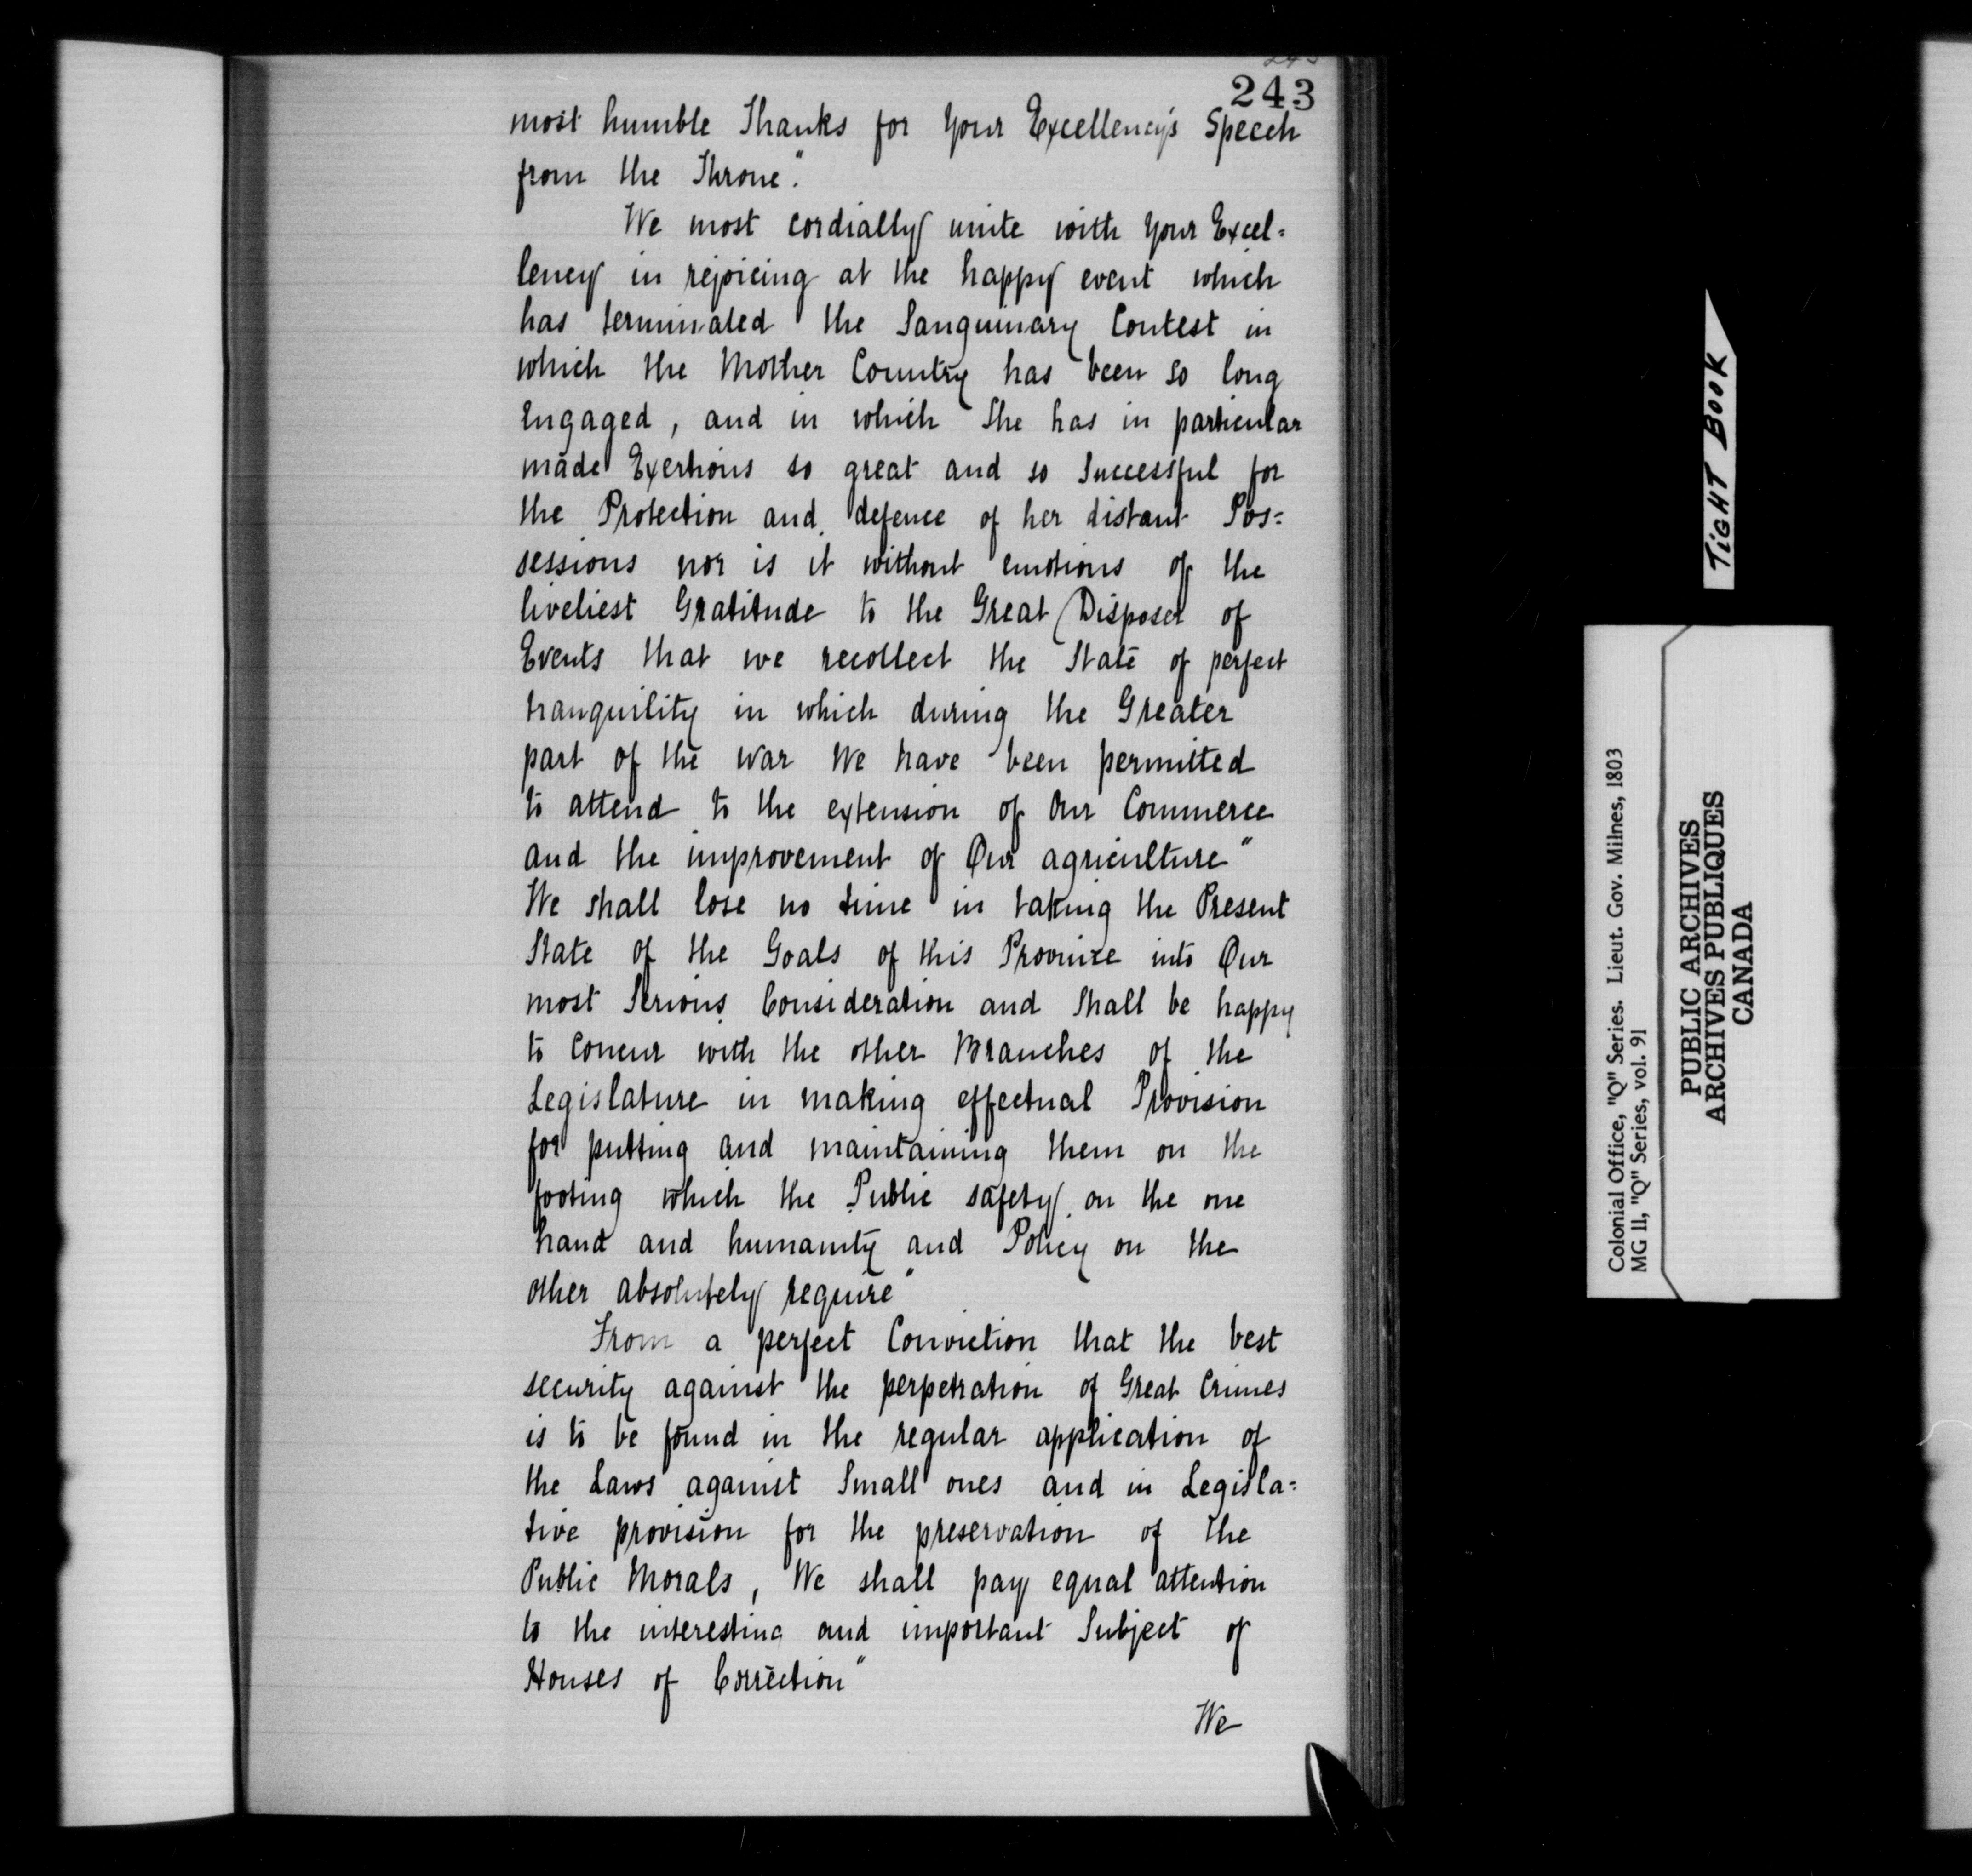 243
most humble Thanks for Your Excellency's Speech
from the Throne".
We most cordially unite with Your Excel=
lency in rejoicing at the happy event which
has terminated the Sanguinary Contest in
which the Mother Country has been so long
engaged, and in which She has in particular
made Exertions so great and so Successful for
the Protection and defence of her distant Pos=
sessions nor is it without emotions of the
liveliest Gratitude to the Great Disposer of
Events that we recollect the State of perfect
tranquility in which during the Greater
part of the war We have been permitted
to attend to the extension of Our Commerce
and the improvement of Our agriculture"
We shall lose no time in taking the Present
State of the Goals of this Province into Our
most Serious Consideration and Shall be happy
to Concur with the other Branches of the
Legislature in making effectual Provision
for putting and maintaining them on the
footing which the Public safety on the one
hand and humanity and Policy on the
other absolutely require"
From a perfect Conviction that the best
security against the perpetration of Great Crimes
is to be found in the regular application of
the Laws against Small ones and in Legisla=
tive provision for the preservation of the
Public Morals, We shall pay equal attention
to the interesting and important Subject of
Houses of Correction"
We
TIGHT BOOK
Colonial Office, "Q" Series. Lieut. Gov. Milnes, 1803
MG 11, "Q" Series, vol. 91
PUBLIC ARCHIVES
ARCHIVES PUBLIQUES
CANADA